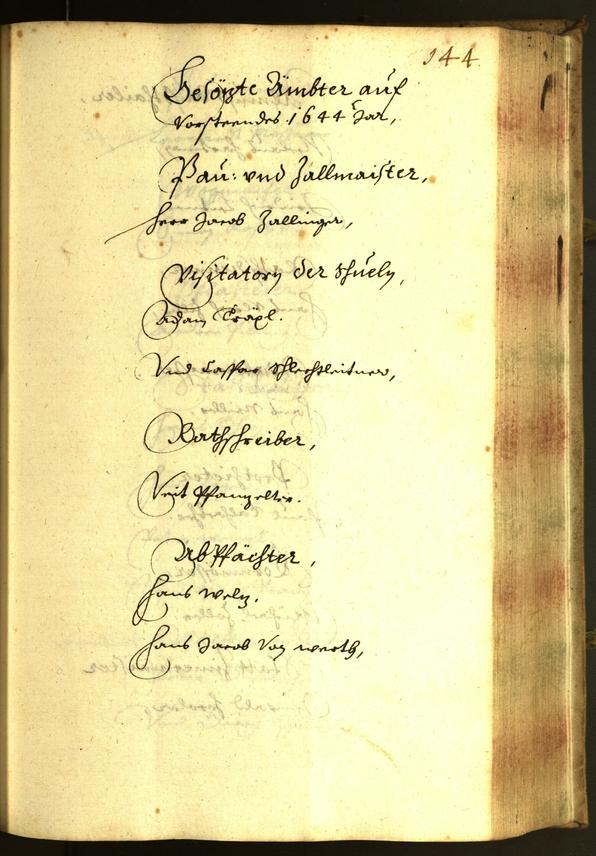 144.
Besözte Ämbter auf
Vorsteendes 1644 Jar,
Pau: vnd Zallmaister,
Herr Jacob Zallinger,
Visitatorn der Schueln,
Adam Träxl.
Vnd Casspar Schlechtleitner,
Rathschreiber,
Veit Pfanzelter.
Abpfächter,
Hans Welz.
Hans Jacob Von werth,